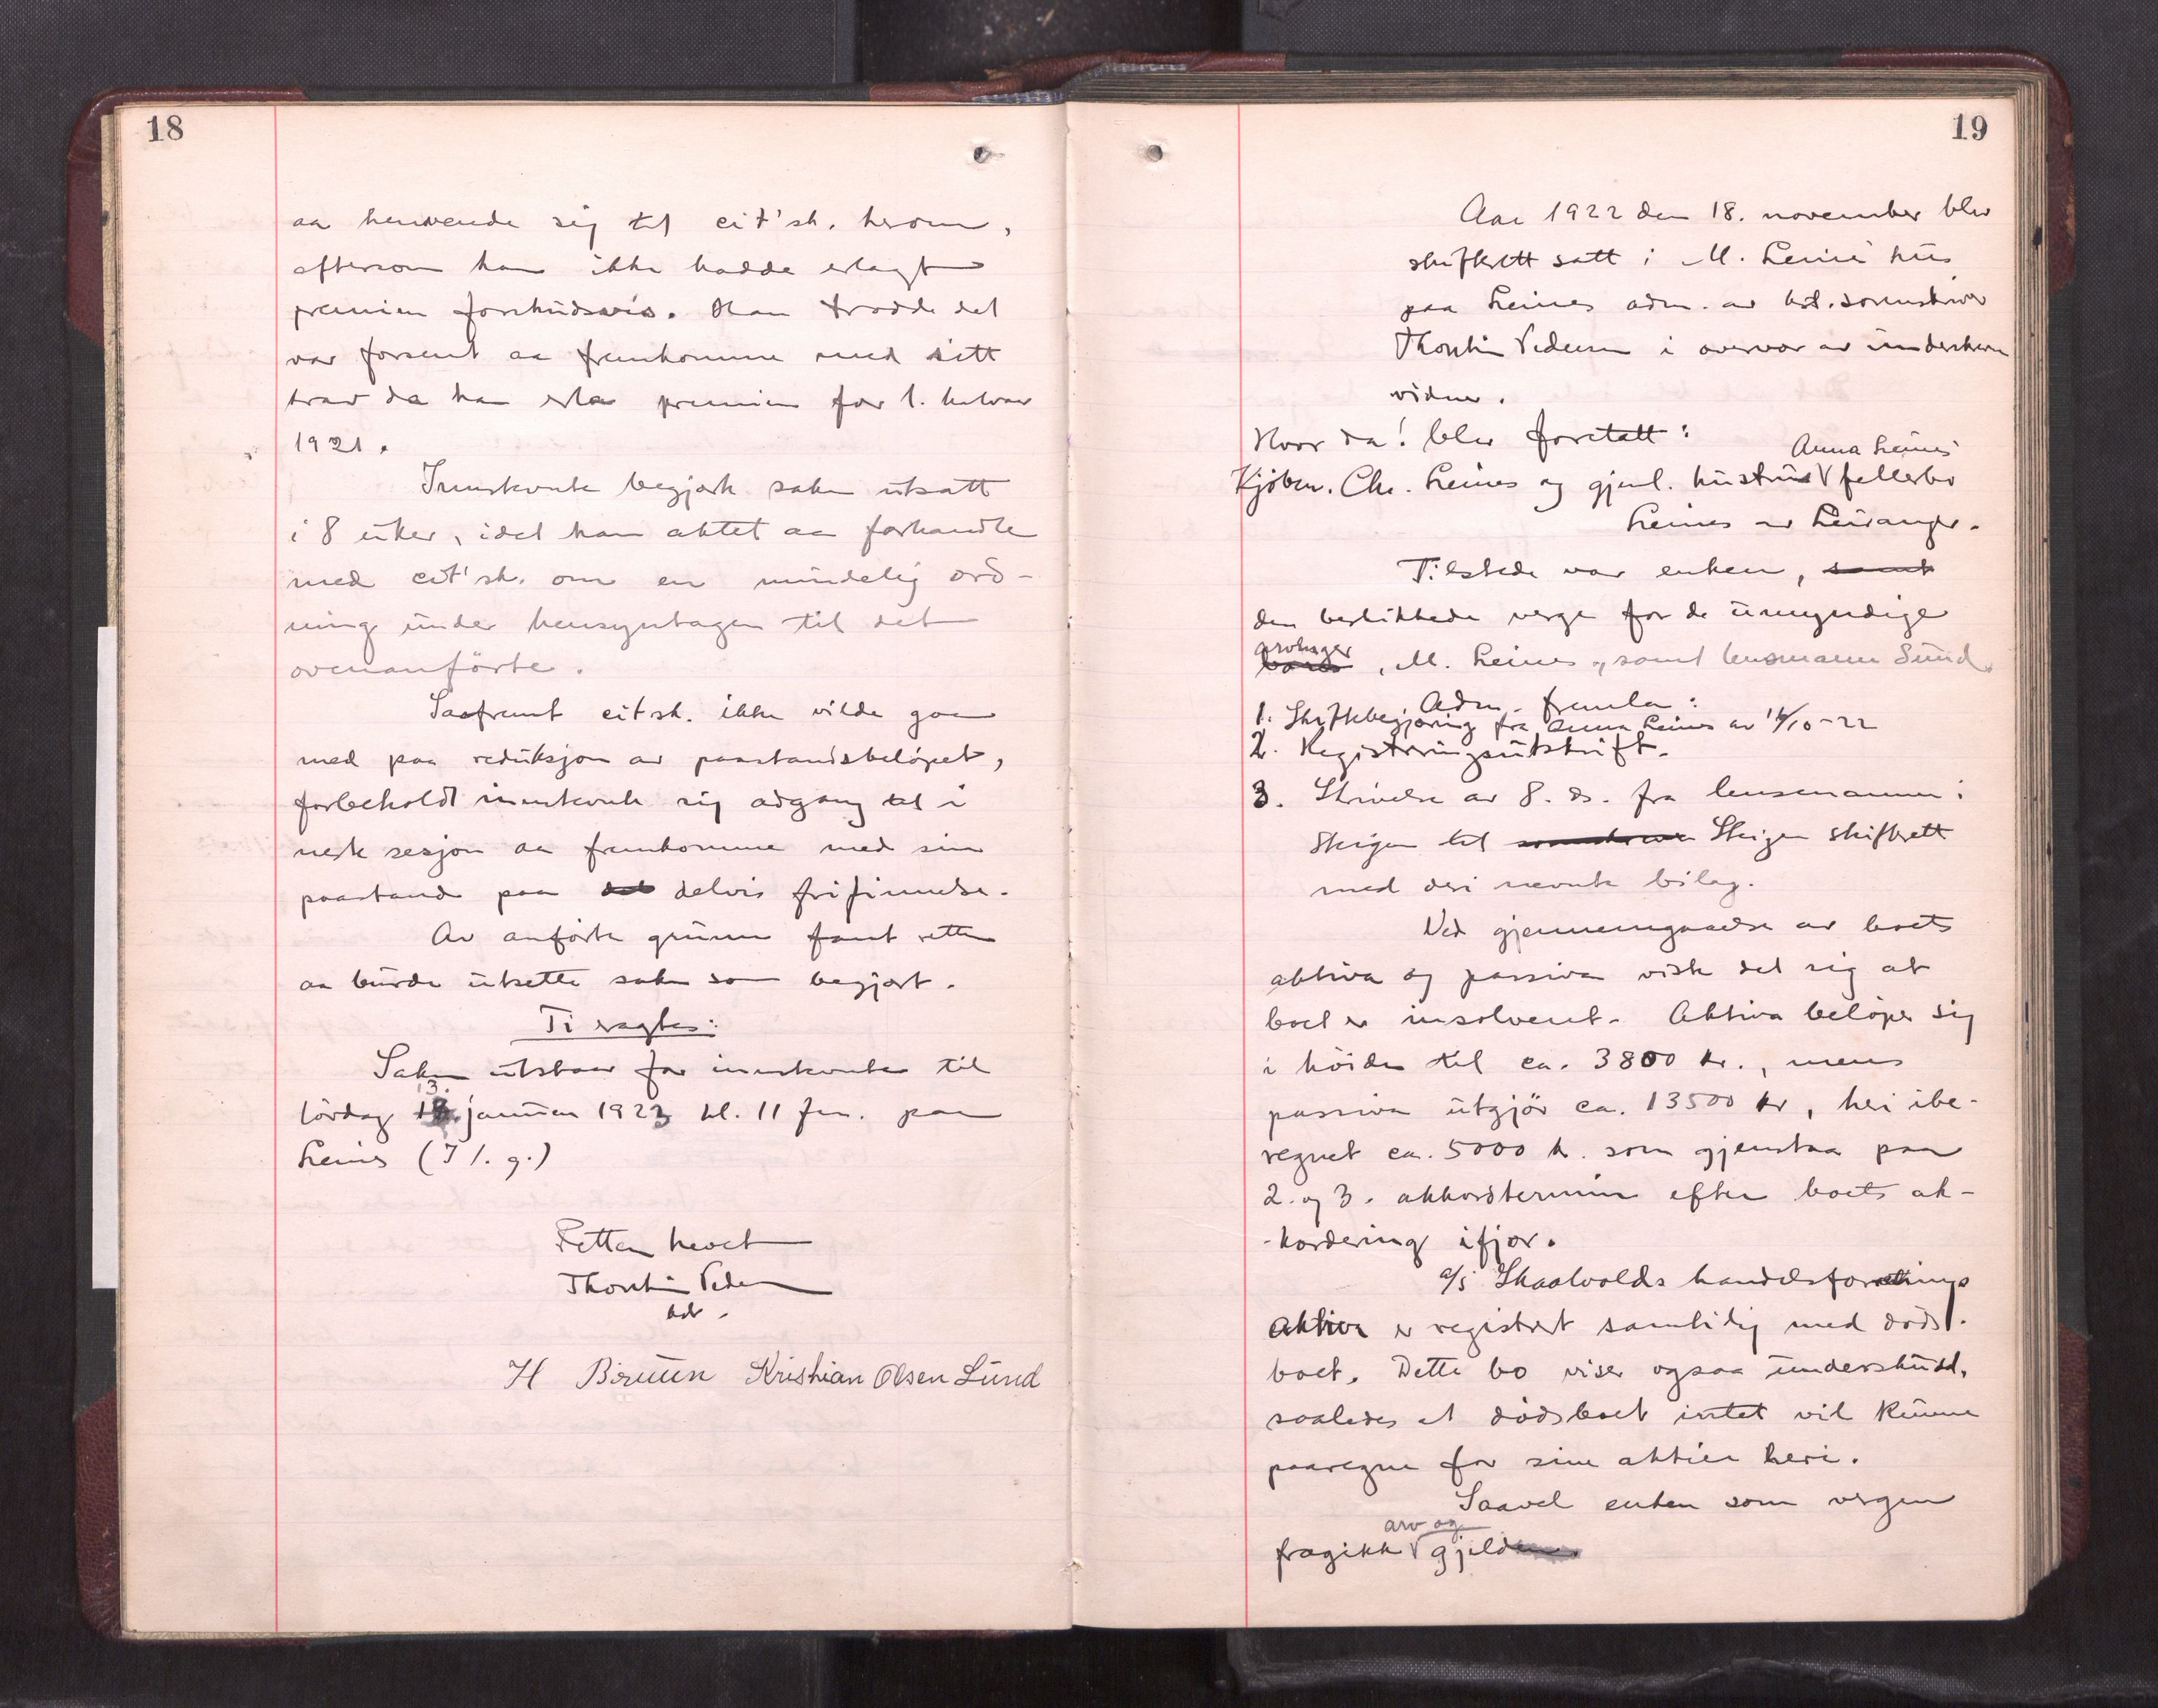 18
aa henvende sig til cit'sk. herom,
eftersom han ikke hadde erlagt
premien forskudsvis. Han trodde det
var forsent aa fremkomme med sitt
krav da han erla premien for 1. halvaar
1921.
Innstevnte begjærte saken utsatt
i 8 uker, idet han aktet aa forhandle
med cit'sk. om en mindelig ord-
ning under hensyntagen til det
ovenanförte.
Saafremt citsk. ikke vilde gaa
med paa reduksjon av paastandsbelöpet,
forbeholdt innstevnte sig adgang til i
neste sesjon aa fremkomme med sin
paastand paa del delvis frifinnelse.
Av anförte grunn fant retten
aa burde utsette saken som begjært.
Ti eragtes:
Saken utstaar for innstevnte til
lördag 13. januar 1923 kl. 11 fm. paa
Leines (I l. g.)
Retten hevet
Thorstein Pedersen
edr.
H Bruun Kristian Olsen Lund
19
Aar 1922 den 18. november blev
skifterett satt i M. Leines' hus
paa Leines adm. av kst. sorenskriver
Thorstein Pedersen i overvær av underskrevne
vidner.
Hvor da! blev foretatt:
Anna Leines'
Kjöbm. Chr. Leines og gjenl. hustrus V fellesbo
Leines av Leiranger.
Tilstede var enken, samt
den beskikkede verge for de umyndige
arvinger
barn, M. Leines, samt lensmann Sund.
Adm. fremla:
1. Skiftebegjæring fra Anna Leines av 14/10-22
2. Registreringsutskrift.
3. Skrivelse av 8. ds. fra lensmannen i
Steigen til sorenskriveren Steigen skifterett
med deri nevnte bilag.
Ved gjennemgaaelse av boets
aktiva og passiva viste det sig at
boet er insolvent. Aktiva belöper sig
i höiden til ca. 3800 kr., mens
passiva utgjör ca. 13500 kr, heri ibe-
regnet ca. 5000 kr. som gjenstaar paa
2. og 3. akkordtermin efter boets ak-
-kordering ifjor.
a/s Skaalvolds handelsforretnings
aktiva er registrert samtidig med döds-
boet. Dette bo viser ogsaa underskudd,
saaledes at dödsboet intet vil kunne
paaregne for sine aktier heri.
Saavel enken som vergen
arv og
fragikk V gjelden.